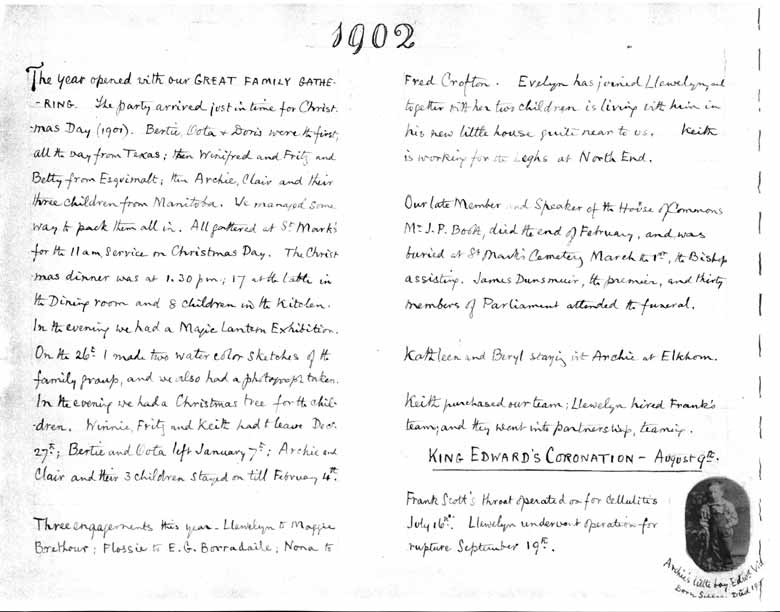 1902
The year opened with our GREAT FAMILY GATHE-
-RING. The party arrived just in time for Christ-
-mas Day (1901). Bertie, Oota & Doris were the first,
all the way from Texas; then Winifred and Fritz and
Betty from Esquimalt; then Archie, Clair and their
three children from Manitoba. We managed some
way to pack them all in. All gathered at St Mark's
for the 11 am, service on Christmas Day. The Christ
-mas dinner was at 1.30 pm; 17 at the table in
the Dining room and 8 children in the Kitchen.
In the evening we had a Magic Lantern Exhibition.
On the 26th I made two water color sketches of the
family group, and we also had a photograph taken.
In the evening we had a Christmas tree for the chil-
-dren. Winnie, Fritz and Keith had to leave Dec.
27th; Bertie and Oota left January 7th; Archie and
Clair and their 3 children stayed on till February 4th.
Three engagements this year - Llewelyn to Maggie
Brethour; Flossie to E.G. Borradaile; Nona to
Fred Crofton. Evelyn has joined Llewelyn, and
together with her two children is living with him in
his new little house quite near to us. Keith
is working for the Leghs at North End.
Our late Member and Speaker of the House of Commons
Mr J.P. Book, died the end of February, and was
buried at St Mark's Cemetery March the 1st, the Bishop
assisting. James Dunsmuir, the premier, and thirty
members of Parliament attended the funeral.
Kathleen and Beryl staying with Archie at Elkhorn.
Keith purchased our team; Llewelyn hired Frank's
team; and they went into partnership, teaming.
KING EDWARD'S CORONATION - August 9th.
Frank Scott's throat operated on for cellulites
July 16th. Llewelyn underwent operation for
rupture September 19th.
Archie's little boy, Edwd
Born Died